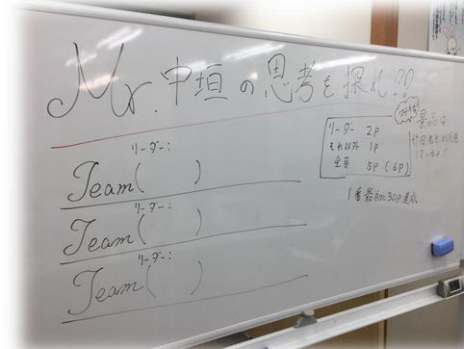 Mr.中垣の思考を探れ??
リーダー:
Team(   )
リーダー:
Team(   )
リーダー:
Team(   )
リーダー 2P
それ以外 1P
全員 5P (6P)
景品は
1番最初に30P達成